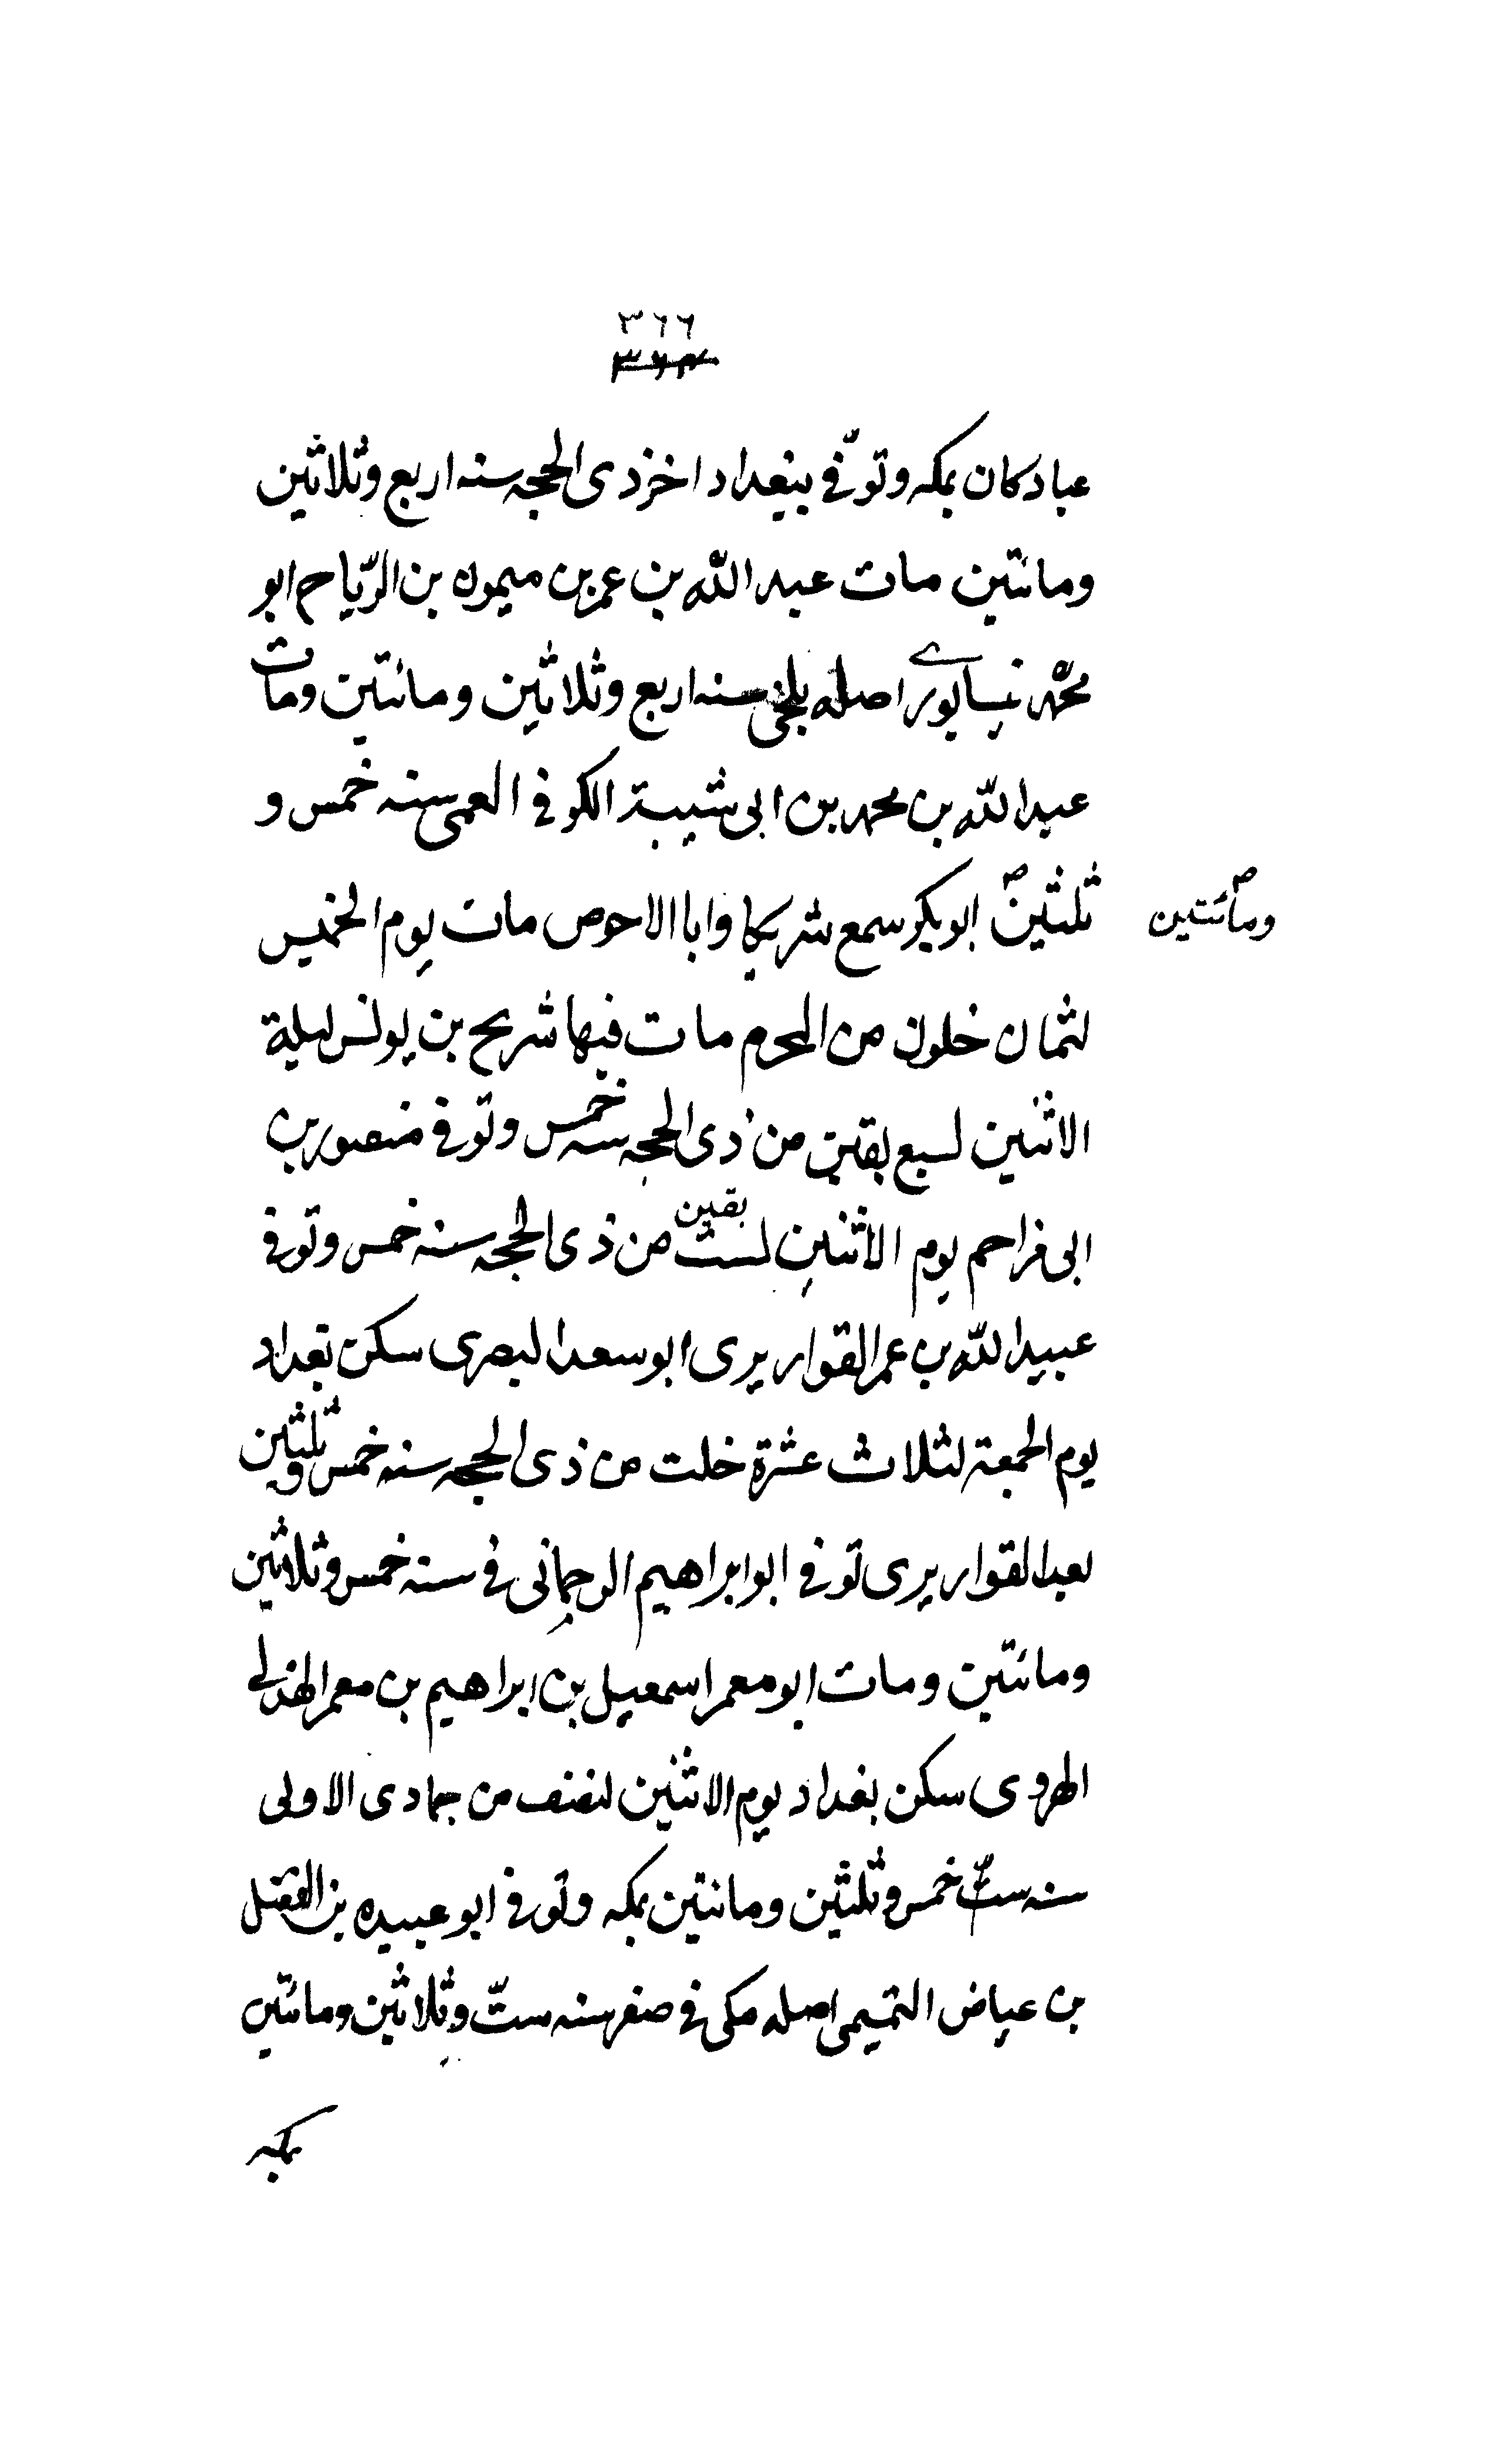 ٣٦٦
عباد كان بمكه وتوّفي ببغداد اخر ذى الحجه سنه اربع وثلاثين
ومائتين مات عبد الله بن عمر بن ميمون بن الرّياح ابو
محمّد نيسابورى اصله بلخى سنه اربع وثلاثين ومائتين ومات
عبد الله بن محمد بن ابى شيبة الكوفى العمى سنه خمس و
ثلثين ابو بكر سمع شريكا وابا الاحوص مات يوم الخميس
ومائتين
لثمان خلون من المحرم مات فيها شريح بن يونس ليلة
الاثنين لسبع بقين من ذى الحجه سنه خمس وتوفى منصور بن
ابى مزاحم يوم الاثنين لست بقين من ذى الحجه سنه خمس وتوفى
عبيد الله بن عمر القواريرى ابو سعد البصرى سكن بغداد
يوم الجمعة لثلاث عشرة خلت من ذى الحجه سنه خمس وثلثين
بعد القواريرى توفى ابو ابراهيم الرجمانى فى سنه خمس وثلاثين
ومائتين ومات ابو معمر اسمعيل بن ابراهيم بن معمر الهذلى
الهروى سكن بغداد يوم الاثنين لنصف من جمادى الاولى
سنه ستّ خمس وثلثين ومائتين بمكه وتوفى ابو عبيده بن الفضل
بن عياض التميمى اصله مكى فى صفر سنه ستّ وثلاثين ومائتين
بمكه